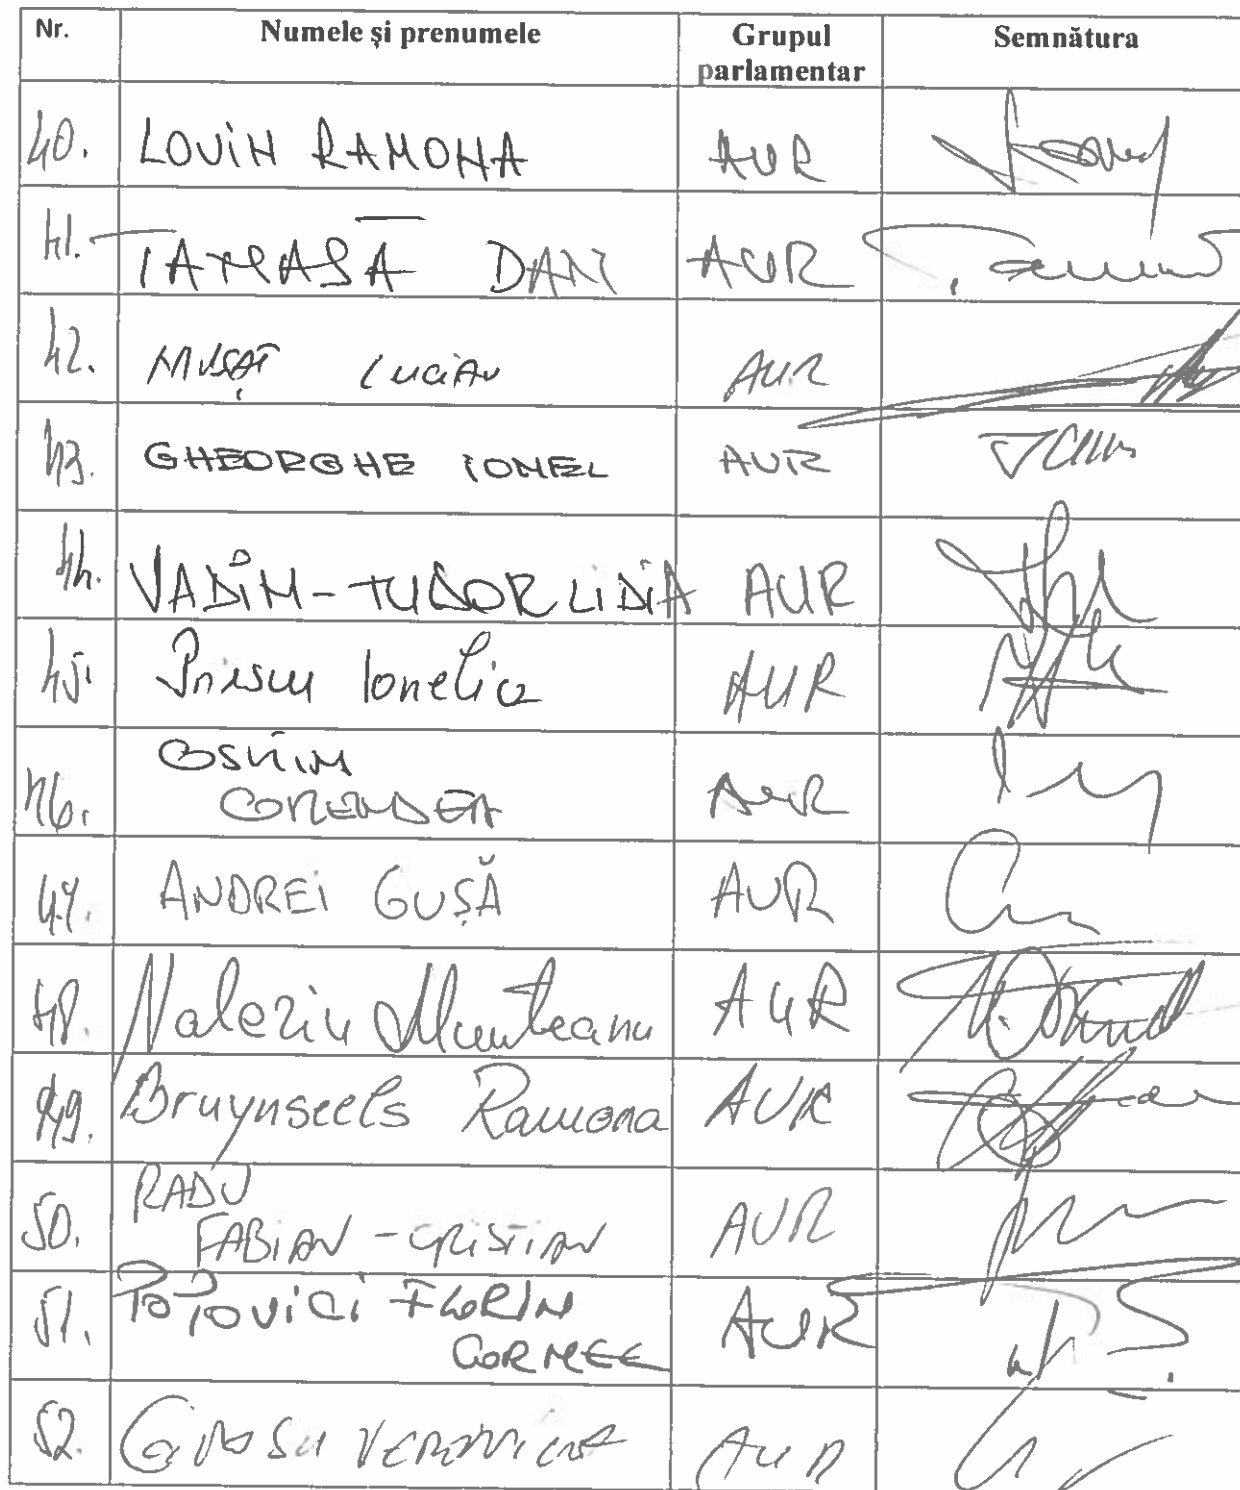 Nr. Numele și prenumele Grupul parlamentar Semnătura
40. LOVIN RAMONA AUR
41. TANASĂ DAN AUR
42. MUȘAT LUCIAN AUR
43. GHEORGHE IONEL AUR
44. VADIM-TUDOR LIDIA AUR
45. Priescu Ionelia AUR
46. COSMIN
CORENDEA AUR
47. ANDREI GUȘĂ AUR
48. Valeriu Munteanu AUR
49. Bruynseels Ramona AUR
50. RADU
FABIAN-CRISTIAN AUR
51. POPOVICI FLORIN
CORNEL AUR
52. GROSU VERONICA AUR